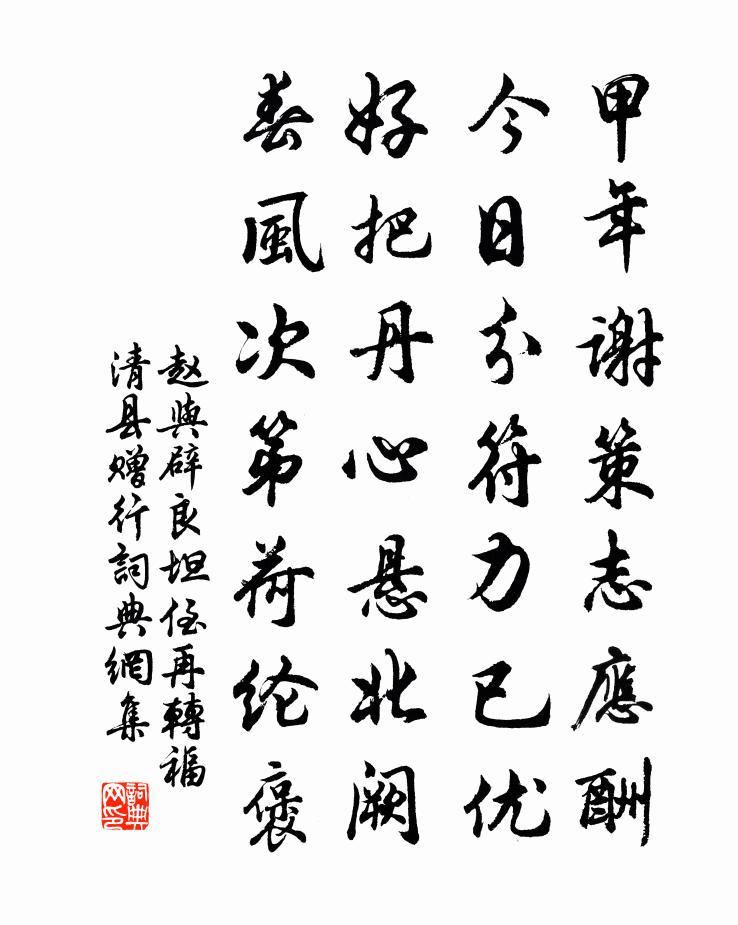 甲年謝策志應酬
今日分符力已优
好把丹心悬北阙
春風次第荷纶褒
赵與辟良坦侄再轉福
清县赠行詞典網集
詞典網印